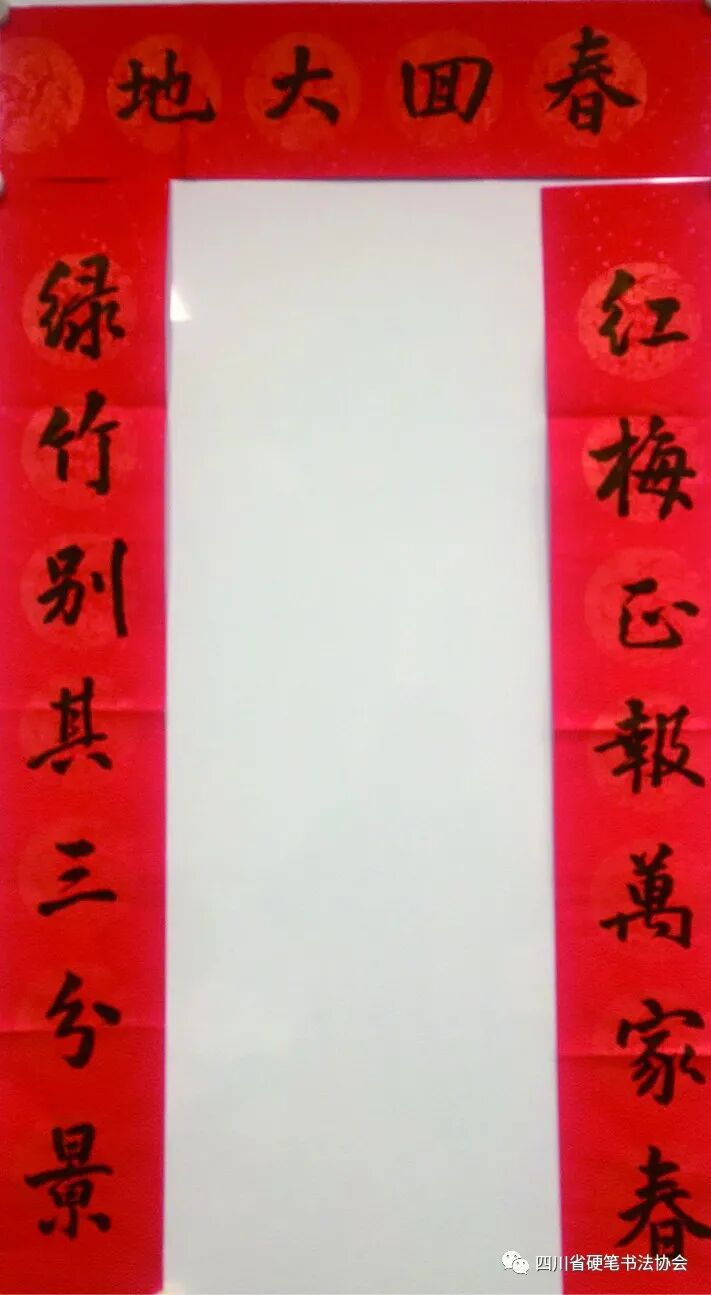 春回大地
红梅正報萬家春
绿竹别其三分景
四川省硬笔书法协会